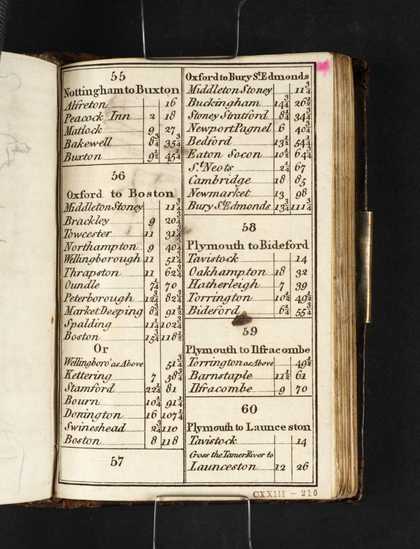 55
Nottingham to Buxton
Alfreton 16
Peacock Inn 2 18
Matlock 9 27
Bakewell 8¾ 35¾
Buxton 9½ 45¼
56
Oxford to Boston
Middleton Stoney 11¾
Brackley 9 20¾
Towcester 11 31¾
Northampton 9 40¾
Wellingborough 11 51¾
Thrapston 11 62¾
Oundle 7¼ 70
Peterborough 12¾ 82¾
Market Deeping 8¾ 91½
Spalding 11¼ 102¾
Boston 15¾ 118½
Or
Wellingboro' as Above 51¾
Kettering 7 58¾
Stamford 22¼ 81
Bourn 10¾ 91¾
Donington 16 107¾
Swineshead 2¼ 110
Boston 8 118
57
Oxford to Bury St. Edmonds
Middleton Stoney 11¾
Buckingham 14¾ 26½
Stoney Stratford 8¼ 34¾
Newport Pagnel 6 40¾
Bedford 13½ 54¼
Eaton Socon 10¼ 64½
St. Neots 2½ 67
Cambridge 18 85
Newmarket 13 98
Bury St. Edmonds 13¼ 111¼
58
Plymouth to Bideford
Tavistock 14
Oakhampton 18 32
Hatherleigh 7 39
Torrington 10½ 49½
Bideford 6¼ 55¾
59
Plymouth to Ilfracombe
Torrington as Above 49½
Barnstaple 11½ 61
Ilfracombe 9 70
60
Plymouth to Launceston
Tavistock 14
Cross the Tamer River to
Launceston 12 26
CXXIII - 216